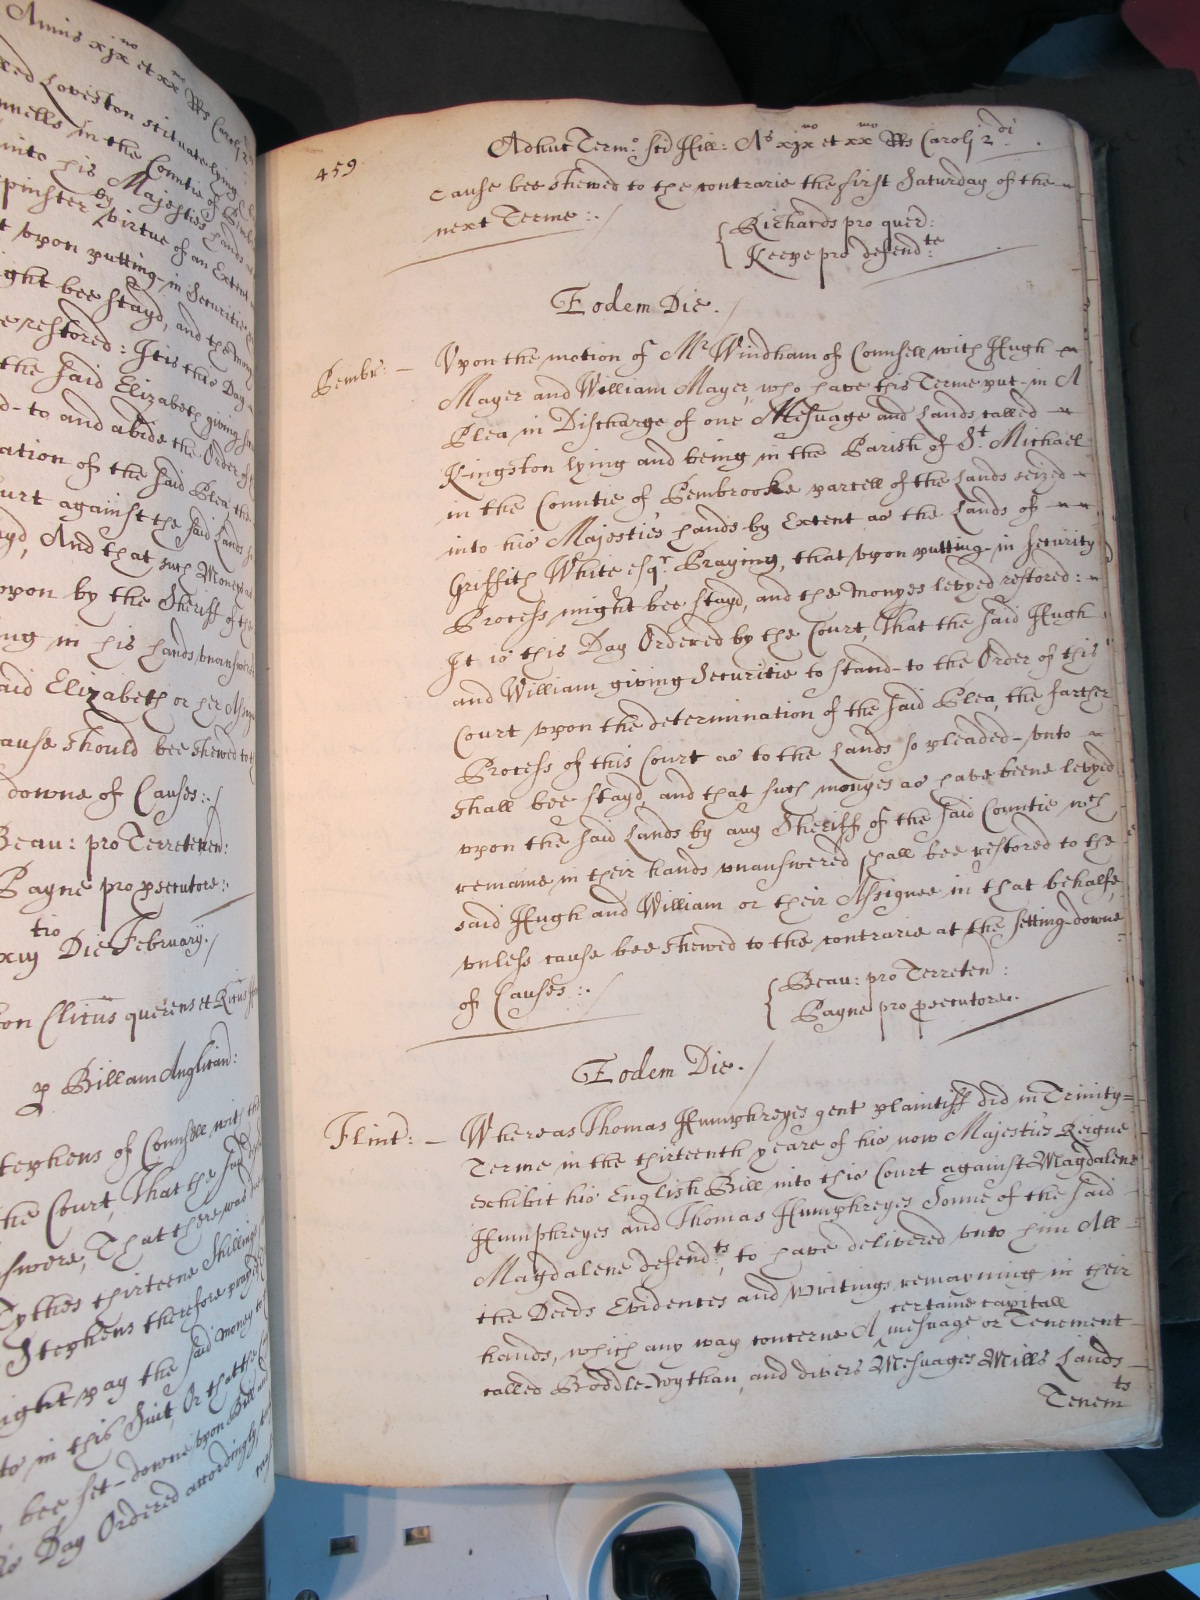 Annis xjx no et xx mo RRs Caroli 2
xed Loveston scituate lying
nnells in the Countie of Pembr
into his Majesties hands
spinster by virtue of an Extent
t upon putting-in Securitie
ight bee stayd, and the mony
restored: It is this Day
the said Elizabeth giving
d-to and abide the Order of
ation of the said Plea, the
urt against the said Lands
ayd, And that such Moneys
upon by the Sheriff of the
ing in his hands unanswered
aid Elizabeth or her Assigne
ause should bee shewed to
downe of Causes:.
Beau: pro Terreten:
Payne pro prsecutore:.
xxiij tio Die February./
on Clicus querens et Ricus
p Billam Anglican:
tephens of Counsell with the
the Court, That the said
swere, That there was
Tythes thirteene Shillings
Stephens therefore prayed
ight pay the said money to
to in this Suit, Or that the
bee set-downe upon Bill and
is Day Ordered accordingly,
459
Adhuc Termo: Sci Hill: Ao xjx no et xx mo RRs Caroli 2 di .
cause bee shewed to the contrarie the first Saturday of the
next Terme :./
Richards pro quer:
Keepe pro defend te
Eodem Die. /
Pembr: — Upon the motion of Mr Windham of Counsell with Hugh
Mayer and William Mayer, who have this Terme put-in A
Plea in Discharge of one Mesuage and Lands called
Kingston lying and being in the Parish of St. Michael
in the Countie of Pembrooke parcell of the Lands seized
into his Majesties hands by Extent as the Lands of
Griffith White esqr. Praying, that upon putting-in Security
Process might bee stayd, and the monyes levyed restored:
It is this Day Ordered by the Court, That the said Hugh
and William giving Securitie to stand-to the Order of this
Court upon the determination of the said Plea, the farther
Process of this Court as to the Lands so pleaded-unto
shall bee stayd, and that such monyes as have beene levyed
upon the said Lands by any Sheriff of the said Countie wch
remaine in their hands unanswered shall bee restored to the
said Hugh and William or their Assignee in that behalfe,
unless cause bee shewed to the contrarie at the setting-downe
of Causes :./
Beau: pro Terreten :
Payne pro prsecutore.
Eodem Die. /
Flint: — Whereas Thomas Humphreyes gent plaintiff did in Trinity=
Terme in the thirteenth yeare of his now Majesties Reigne
exhibit his English Bill into this Court against Magdalene
Humphreyes and Thomas Humphreyes Sonne of the said
Magdalene defend ts, to have delivered unto him All
the Deeds Evidences and Writings remayning in their
hands, which any way concerne A ^ certaine capitall mesuage or Tenement
called Boddle-wythan, and divers Mesuages Mills Lands
Tenem ts